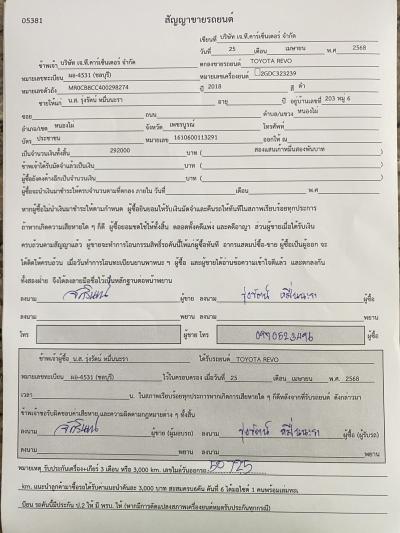 05381
สัญญาขายรถยนต์
เขียนที่ บริษัท เจ.ที.คาร์เซ็นเตอร์ จำกัด
วันที่ 25 เดือน เมษายน พ.ศ 2568
ข้าพเจ้า บริษัท เจ.ที.คาร์เซ็นเตอร์ จำกัด ตกลงขายรถยนต์ TOYOTA REVO
หมายเลขทะเบียน ผอ-4531 (ชลบุรี) หมายเลขเครื่องยนต์ 2GDC323239
หมายเลขตัวถัง MR0CB8CC400298274 ปี 2018 สี ดำ
ขายให้แก่ น.ส. รุ่งรัตน์ หมื่นนะรา อายุ ปี อยู่บ้านเลขที่ 203 หมู่ 6
ซอย ถนน ตำบล/แขวง หนองไผ่
อำเภอ/เขต หนองไผ่ จังหวัด เพชรบูรณ์ โทรศัพท์
บัตร ประชาชน หมายเลข 1610600113291 ออกให้ ณ
เป็นจำนวนเงินทั้งสิ้น 292000 บาท ( สองแสนเก้าหมื่นสองพันบาท
ข้าพเจ้าได้รับมัดจำแล้วเป็นเงิน บาท (
ผู้ซื้อยังคงค้างอีกเป็นจำนวนเงิน บาท (
ผู้ซื้อจะนำเงินมาชำระให้ครบจำนวนตามที่ตกลง ภายใน วันที่ เดือน พ.ศ
หากผู้ซื้อไม่นำเงินมาชำระให้ตามกำหนด ผู้ซื้อยินยอมให้ริบเงินมัดจำและคืนรถให้ทันทีในสภาพเรียบร้อยทุกประการ
ถ้าหากเกิดความเสียหายใด ๆ ก็ดี ผู้ซื้อยอมชดใช้ให้ทั้งสิ้น ตลอดทั้งคดีแพ่ง และคดีอาญา ส่วนผู้ขายเมื่อได้รับเงิน
ครบถ้วนตามสัญญาแล้ว ผู้ขายจะทำการโอนกรรมสิทธิ์รถคันนี้ให้แก่ผู้ซื้อทันที อากรแสตมป์ซื้อ-ขาย ผู้ซื้อเป็นผู้ออก จะ
ทั้งสองฝ่าย จึงได้ลงลายมือชื่อไว้เป็นหลักฐานต่อหน้าพยาน
ลงนาม ผู้ขาย ลงนาม รุ่งรัตน์ หมื่นนะรา ผู้ซื้อ
ลงนาม พยาน ลงนาม พยาน
โทร ผู้ขาย โทร ผู้ซื้อ
ข้าพเจ้าผู้ซื้อ น.ส. รุ่งรัตน์ หมื่นนะรา ได้รับรถยนต์ TOYOTA REVO
หมายเลขทะเบียน ผอ-4531 (ชลบุรี) ไว้ในครอบครอง เมื่อวันที่ 25 เดือน เมษายน พ.ศ 2568
เวลา น. ในสภาพเรียบร้อยทุกประการหากเกิดการเสียหายใด ๆ ก็ดีหลังจากที่รับรถยนต์ ดังกล่าวมา
ข้าพเจ้าขอรับผิดชอบค่าเสียหาย และความผิดตามกฎหมายต่าง ๆ ทั้งสิ้น
ลงนาม ผู้ขาย (ผู้มอบรถ) ลงนาม รุ่งรัตน์ หมื่นนะรา ผู้ซื้อ (ผู้รับรถ)
ลงนาม พยาน ลงนาม พยาน
หมายเหตุ รับประกันเครื่อง+เกียร์ 3 เดือน หรือ 3,000 km. เลขไมล์วันออกรถ
km. แนะนำลูกค้ามาซื้อรถได้รับค่าแนะนำคันละ 3,000 บาท สะสมครบ6คัน คันที่ 6 ได้มอไซค์ 1 คันพร้อมเล่มทะเ
บียน รถคันนี้มีประกัน ป.2 ให้ มี พรบ. ให้ (หากมีการดัดแปลงสภาพเครื่องยนต์หมดรับประกันทุกกรณี)